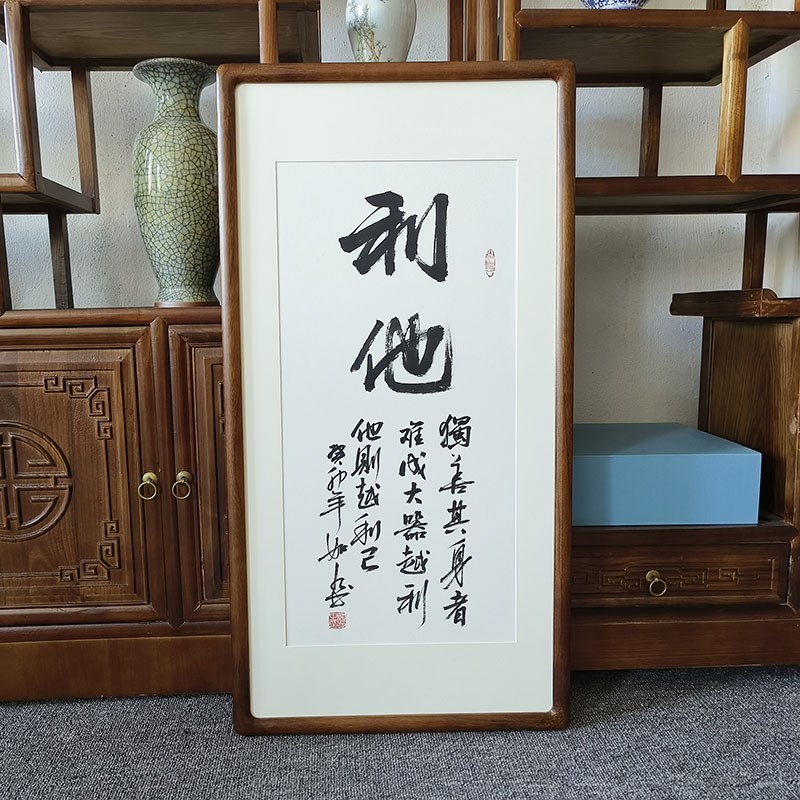 利他
獨善其身者
难成大器越利
他則越利己
癸卯年如